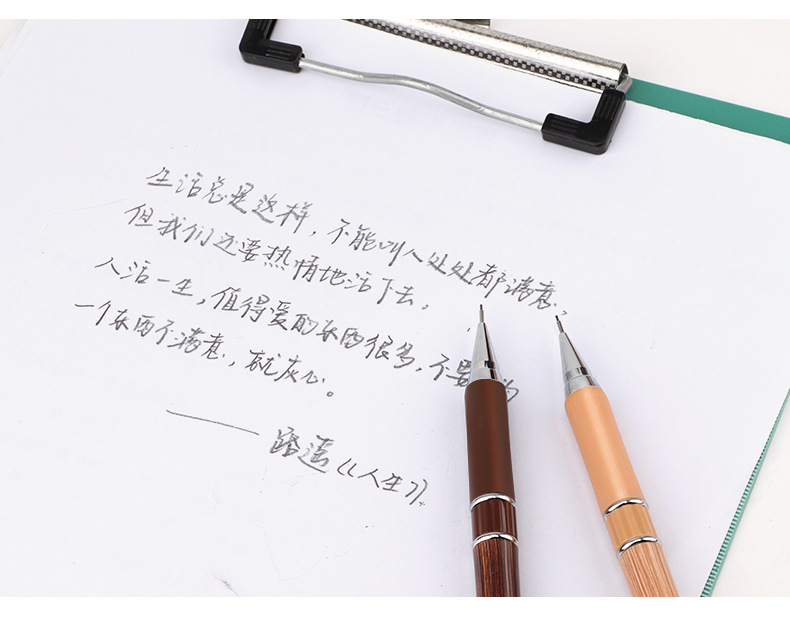 生活总是这样，不能叫人处处都满意，
但我们还要热情地活下去，
人活一生，值得爱的东西很多，不要
一个东西不满意，就灰心。
——路遥《人生》。